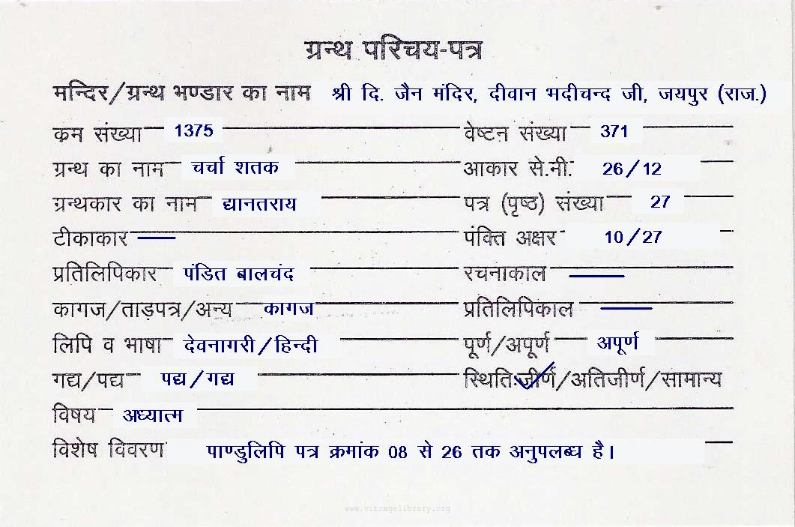 ग्रन्थ परिचय-पत्र
मन्दिर/ग्रन्थ भण्डार का नाम श्री दि. जैन मंदिर, दीवान भदीचन्द जी, जयपुर (राज.)
क्रम संख्या 1375 वेष्टन संख्या 371
ग्रन्थ का नाम चर्चा शतक आकार से.मी. 26/12
ग्रन्थकार का नाम द्यानतराय पत्र (पृष्ठ) संख्या 27
टीकाकार — पंक्ति अक्षर 10/27
प्रतिलिपिकार पंडित बालचंद रचनाकाल —
कागज/ताड़पत्र/अन्य कागज प्रतिलिपिकाल —
लिपि व भाषा देवनागरी/हिन्दी पूर्ण/अपूर्ण अपूर्ण
गद्य/पद्य पद्य/गद्य स्थिति:जीर्ण/अतिजीर्ण/सामान्य
विषय अध्यात्म
विशेष विवरण पाण्डुलिपि पत्र क्रमांक 08 से 26 तक अनुपलब्ध है।
www.vitragelibrary.org